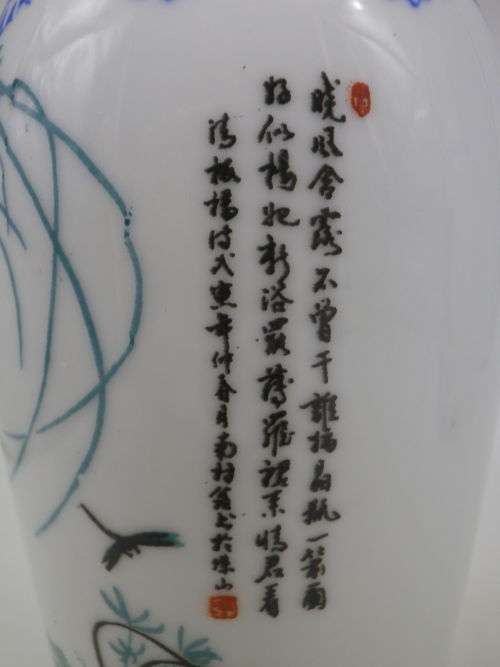 曉風含露不曾干誰插晶瓶一箭蘭
好似楊妃新浴罷薄羅裙系怯君看
清板橋詩戊寅年仲春月南村翁书於珠山